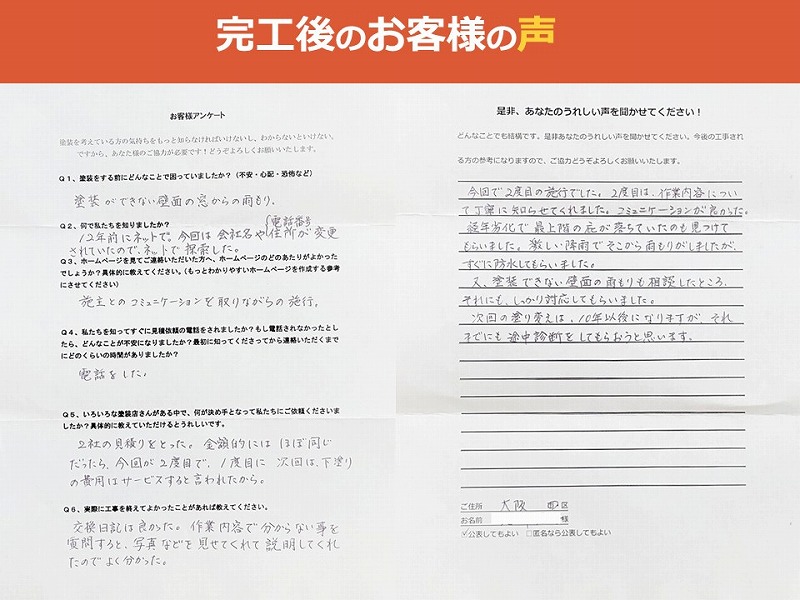 完工後のお客様の声
お客様アンケート
塗装を考えている方の気持ちをもっと知らなければいけないし、わからないといけない。
ですから、あなた様のご協力が必要です！どうぞよろしくお願いいたします。
Q1、塗装をする前にどんなことで困っていましたか？（不安・心配・恐怖など）
塗装ができない壁面の窓からの雨もり。
Q2、何で私たちを知りましたか？
電話番号
12年前にネットで。今回は会社名や住所が変更
されていたので、ネットで探索した。
Q3、ホームページを見てご連絡いただいた方へ、ホームページのどのあたりがよかった
でしょうか？具体的に教えてください。（もっとわかりやすいホームページを作成する参考
にさせてください）
施主とのコミュニケーションを取りながらの施行。
Q4、私たちを知ってすぐに見積依頼の電話をされましたか？もし電話されなかったとし
たら、どんなことが不安になりましたか？最初に知ってくださってから連絡いただくまで
にどのくらいの時間がありましたか？
電話をした。
Q5、いろいろな塗装店さんがある中で、何が決め手となって私たちにご依頼くださいま
したか？具体的に教えていただけるとうれしいです。
2社の見積りをとった。金額的にはほぼ同じ
だったら、今回が2度目で、1度目に次回は、下塗り
の費用はサービスすると言われたから。
Q6、実際に工事を終えてよかったことがあれば教えてください。
交換日記は良かった。作業内容で分からない事を
質問すると、写真などを見せてくれて説明してくれ
たのでよく分かった。
是非、あなたのうれしい声を聞かせてください！
どんなことでも結構です。是非あなたのうれしい声を聞かせてください。今後の工事され
る方の参考になりますので、ご協力どうぞよろしくお願いいたします。
今回で2度目の施行でした。2度目は、作業内容につい
て丁寧に知らせてくれました。コミュニケーションが良かった。
経年劣化で最上階の庇が落ちていたのも見つけて
もらいました。激しい降雨でそこから雨もりがしましたが、
すぐに防水してもらいました。
又、塗装できない壁面の雨もりも相談したところ、
それにも、しっかり対応してもらいました。
次回の塗り変えは、10年以後になりますが、それ
までにも途中診断をしてもらおうと思います。
ご住所 大阪 区
お名前 様
☑公表してもよい □匿名なら公表してもよい